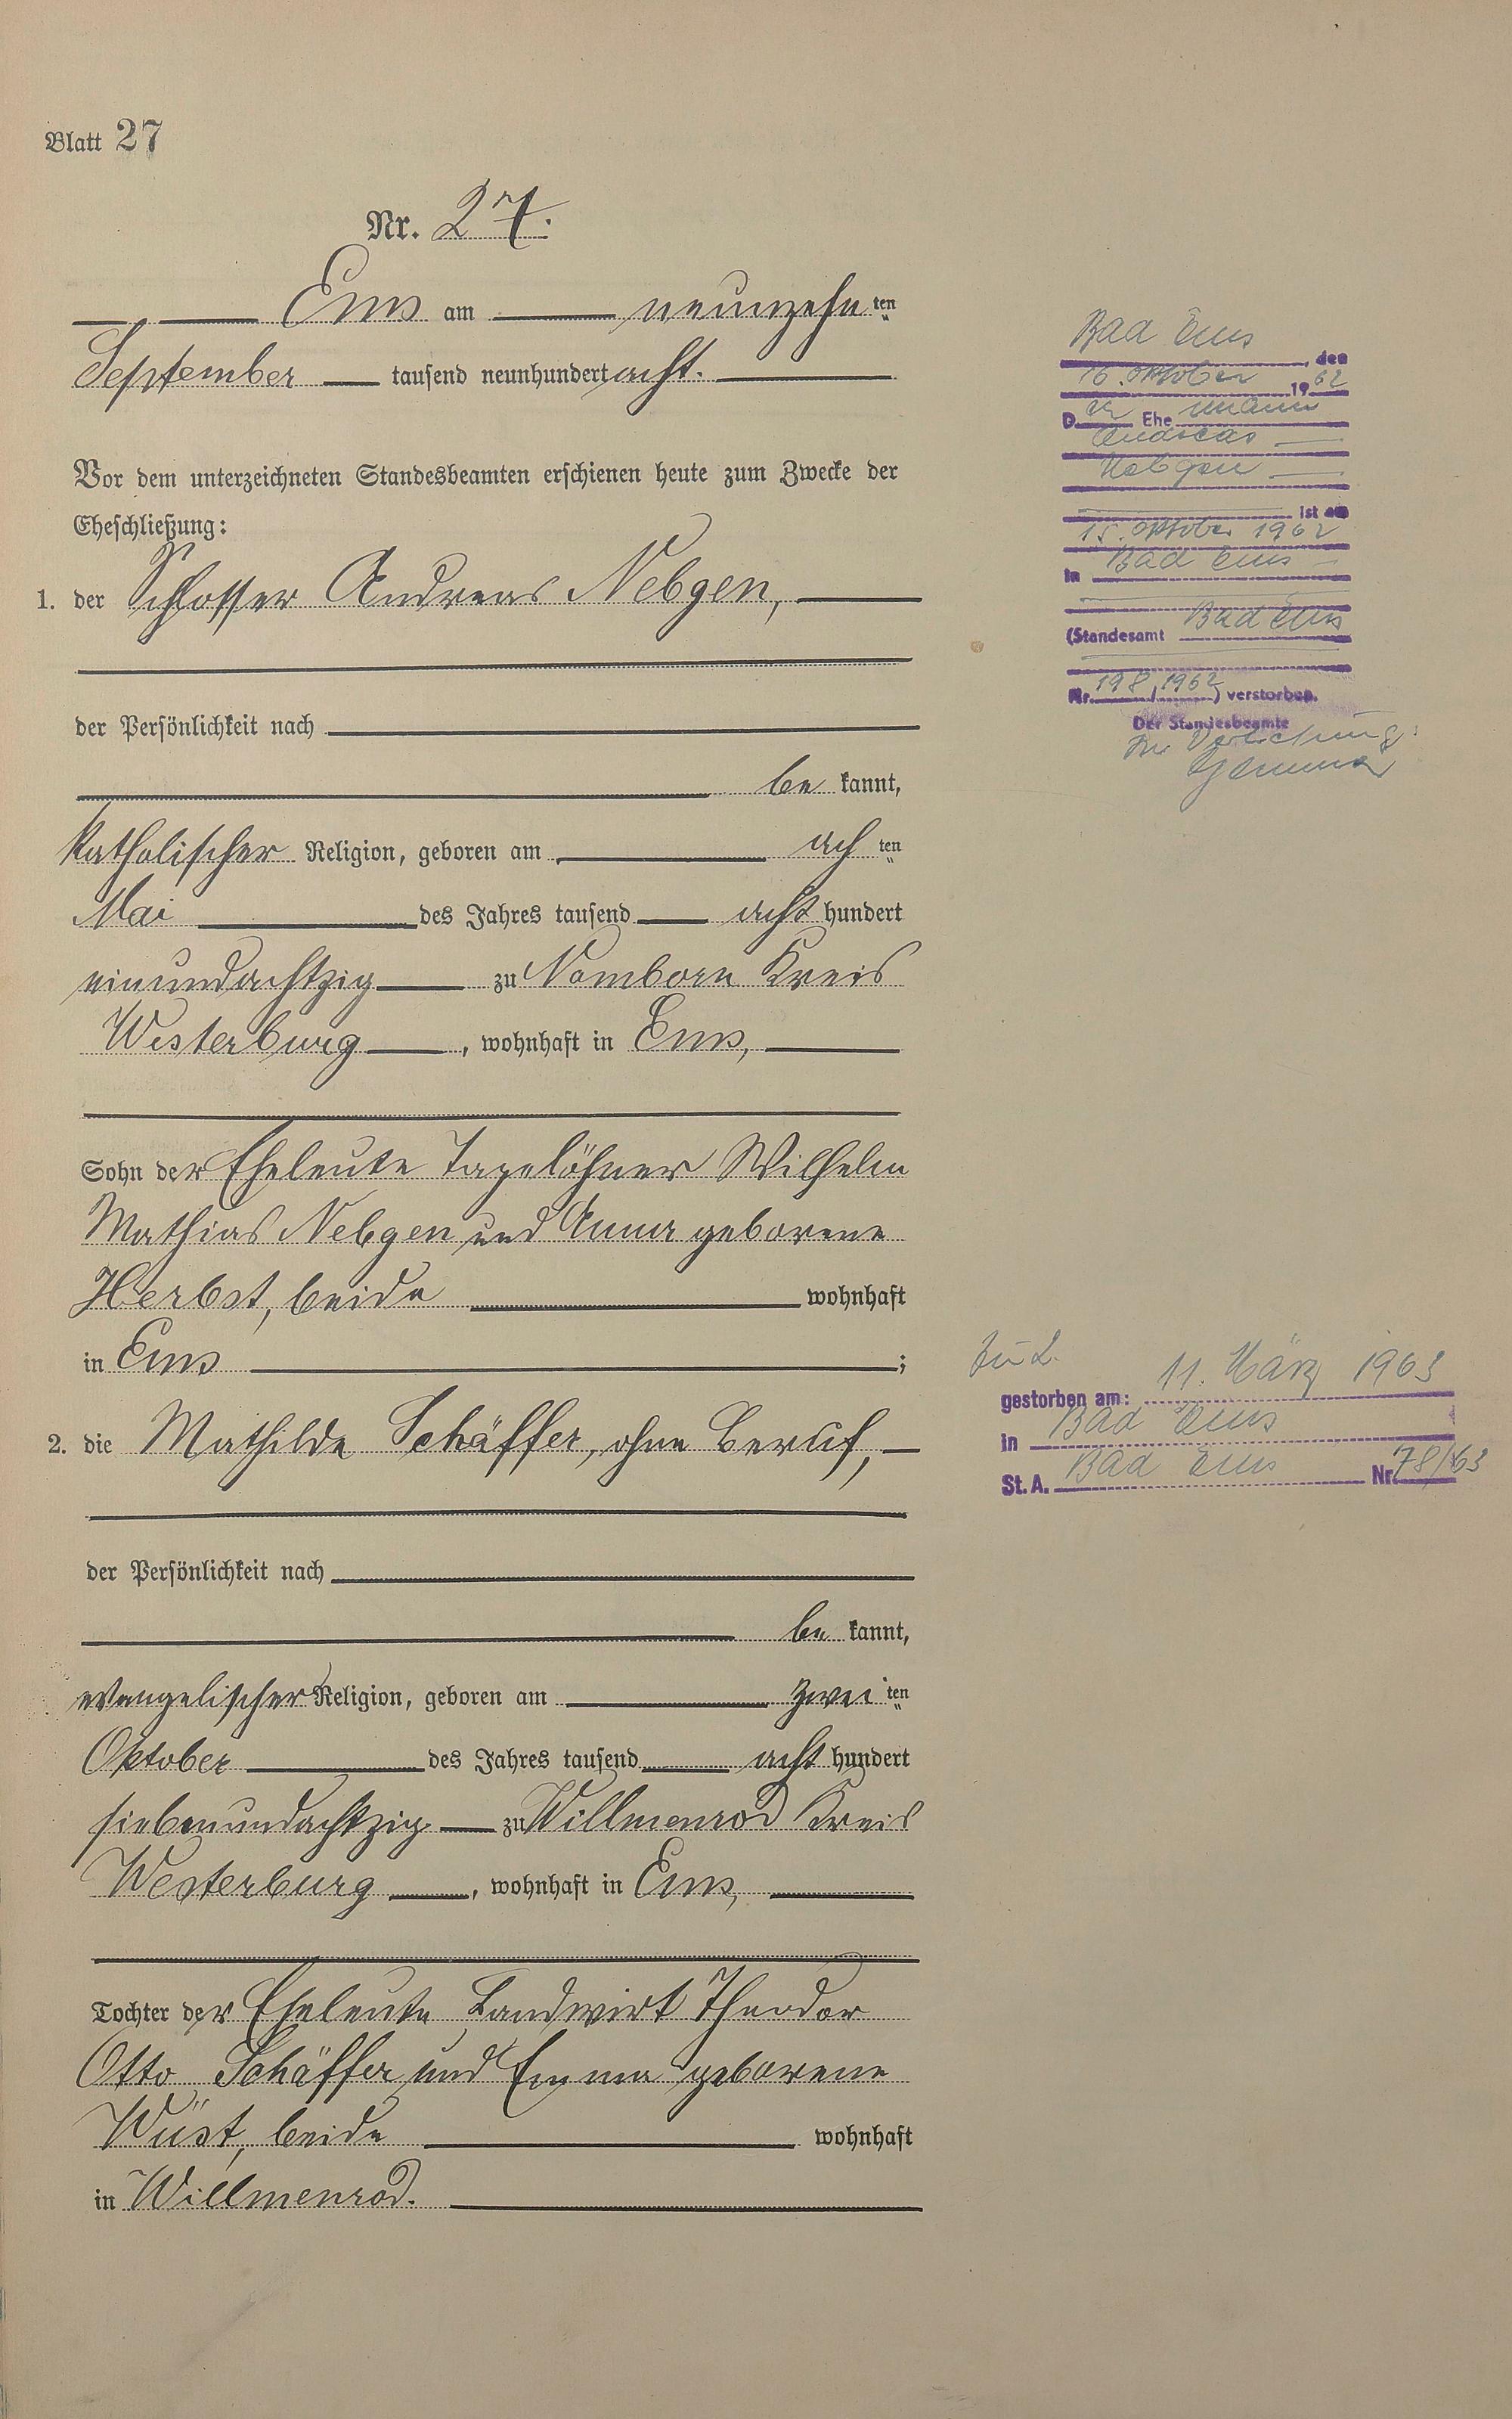 Blatt 27
Nr. 27.
Ems am neunzehn ten
September tausend neunhundert acht.
Vor dem unterzeichneten Standesbeamten erschienen heute zum Zwecke der
Eheschließung:
1. der Schlosser Andreas Nebgen,
der Persönlichkeit nach
be kannt,
katholischer Religion, geboren am ach ten
Mai des Jahres tausend acht hundert
einundachtzig zu Nomborn Kreis
Westerburg, wohnhaft in Ems,
Sohn der Eheleute Tagelöhner Wilhelm
Mathias Nebgen und Anna geborene
Herbst, beide wohnhaft
in Ems ;
2. die Mathilde Schäffer, ohne Beruf,
der Persönlichkeit nach
be kannt,
evangelischer Religion, geboren am zwei ten
Oktober des Jahres tausend acht hundert
siebenundachtzig zu Willmenrod Kreis
Westerburg, wohnhaft in Ems,
Tochter der Eheleute Landwirt Theodor
Otto Schäffer und Emma geborene
Wüst, beide wohnhaft
in Willmenrod.
Bad Ems
, den
16. Oktober 1962
Der Ehemann
Andreas
Nebgen
ist am
15. Oktober 1962
in Bad Ems
(Standesamt Bad Ems
Nr. 198/1962) verstorben.
Der Standesbeamte
In Vertretung:
zu 2.
gestorben am: 11. März 1963
in Bad Ems
St. A. Bad Ems Nr. 78/63